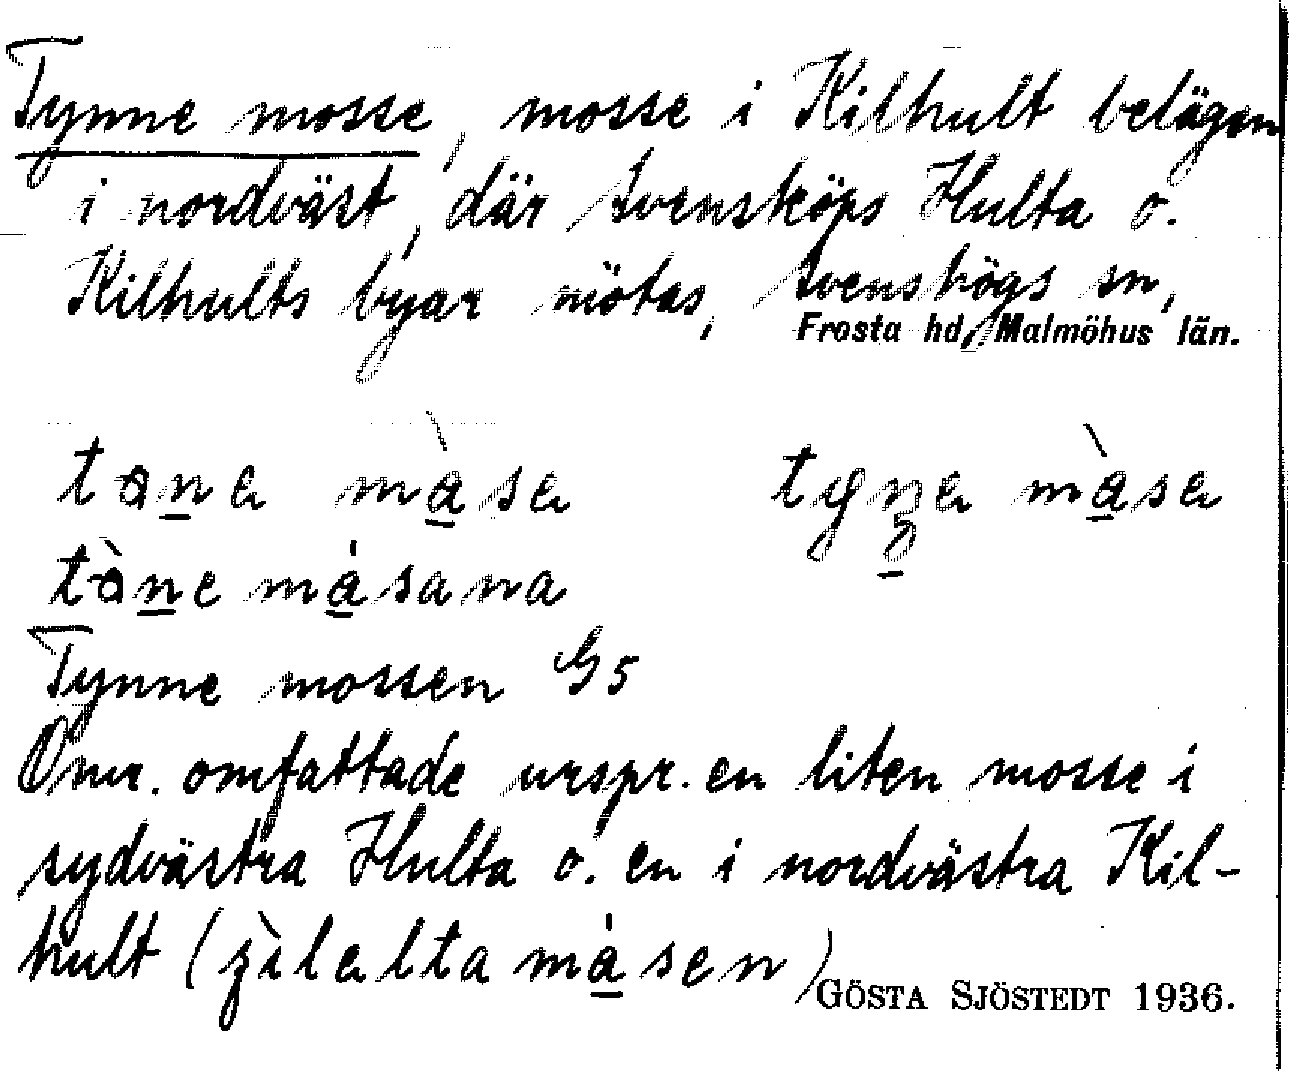 Tynne mosse, mosse i Kilhult belägen
i nordväst, där Svensköps Hulta o.
Kilhults byar mötas, Svensköps sn,
Frosta hd, Malmöhus län.
måse
måse
måsana
Tynne mossen G5
Omr. omfattade urspr. en liten mosse i
sydvästra Hulta o. en i nordvästra Kil-
hult ( måsen)
GÖSTA SJÖSTEDT 1936.